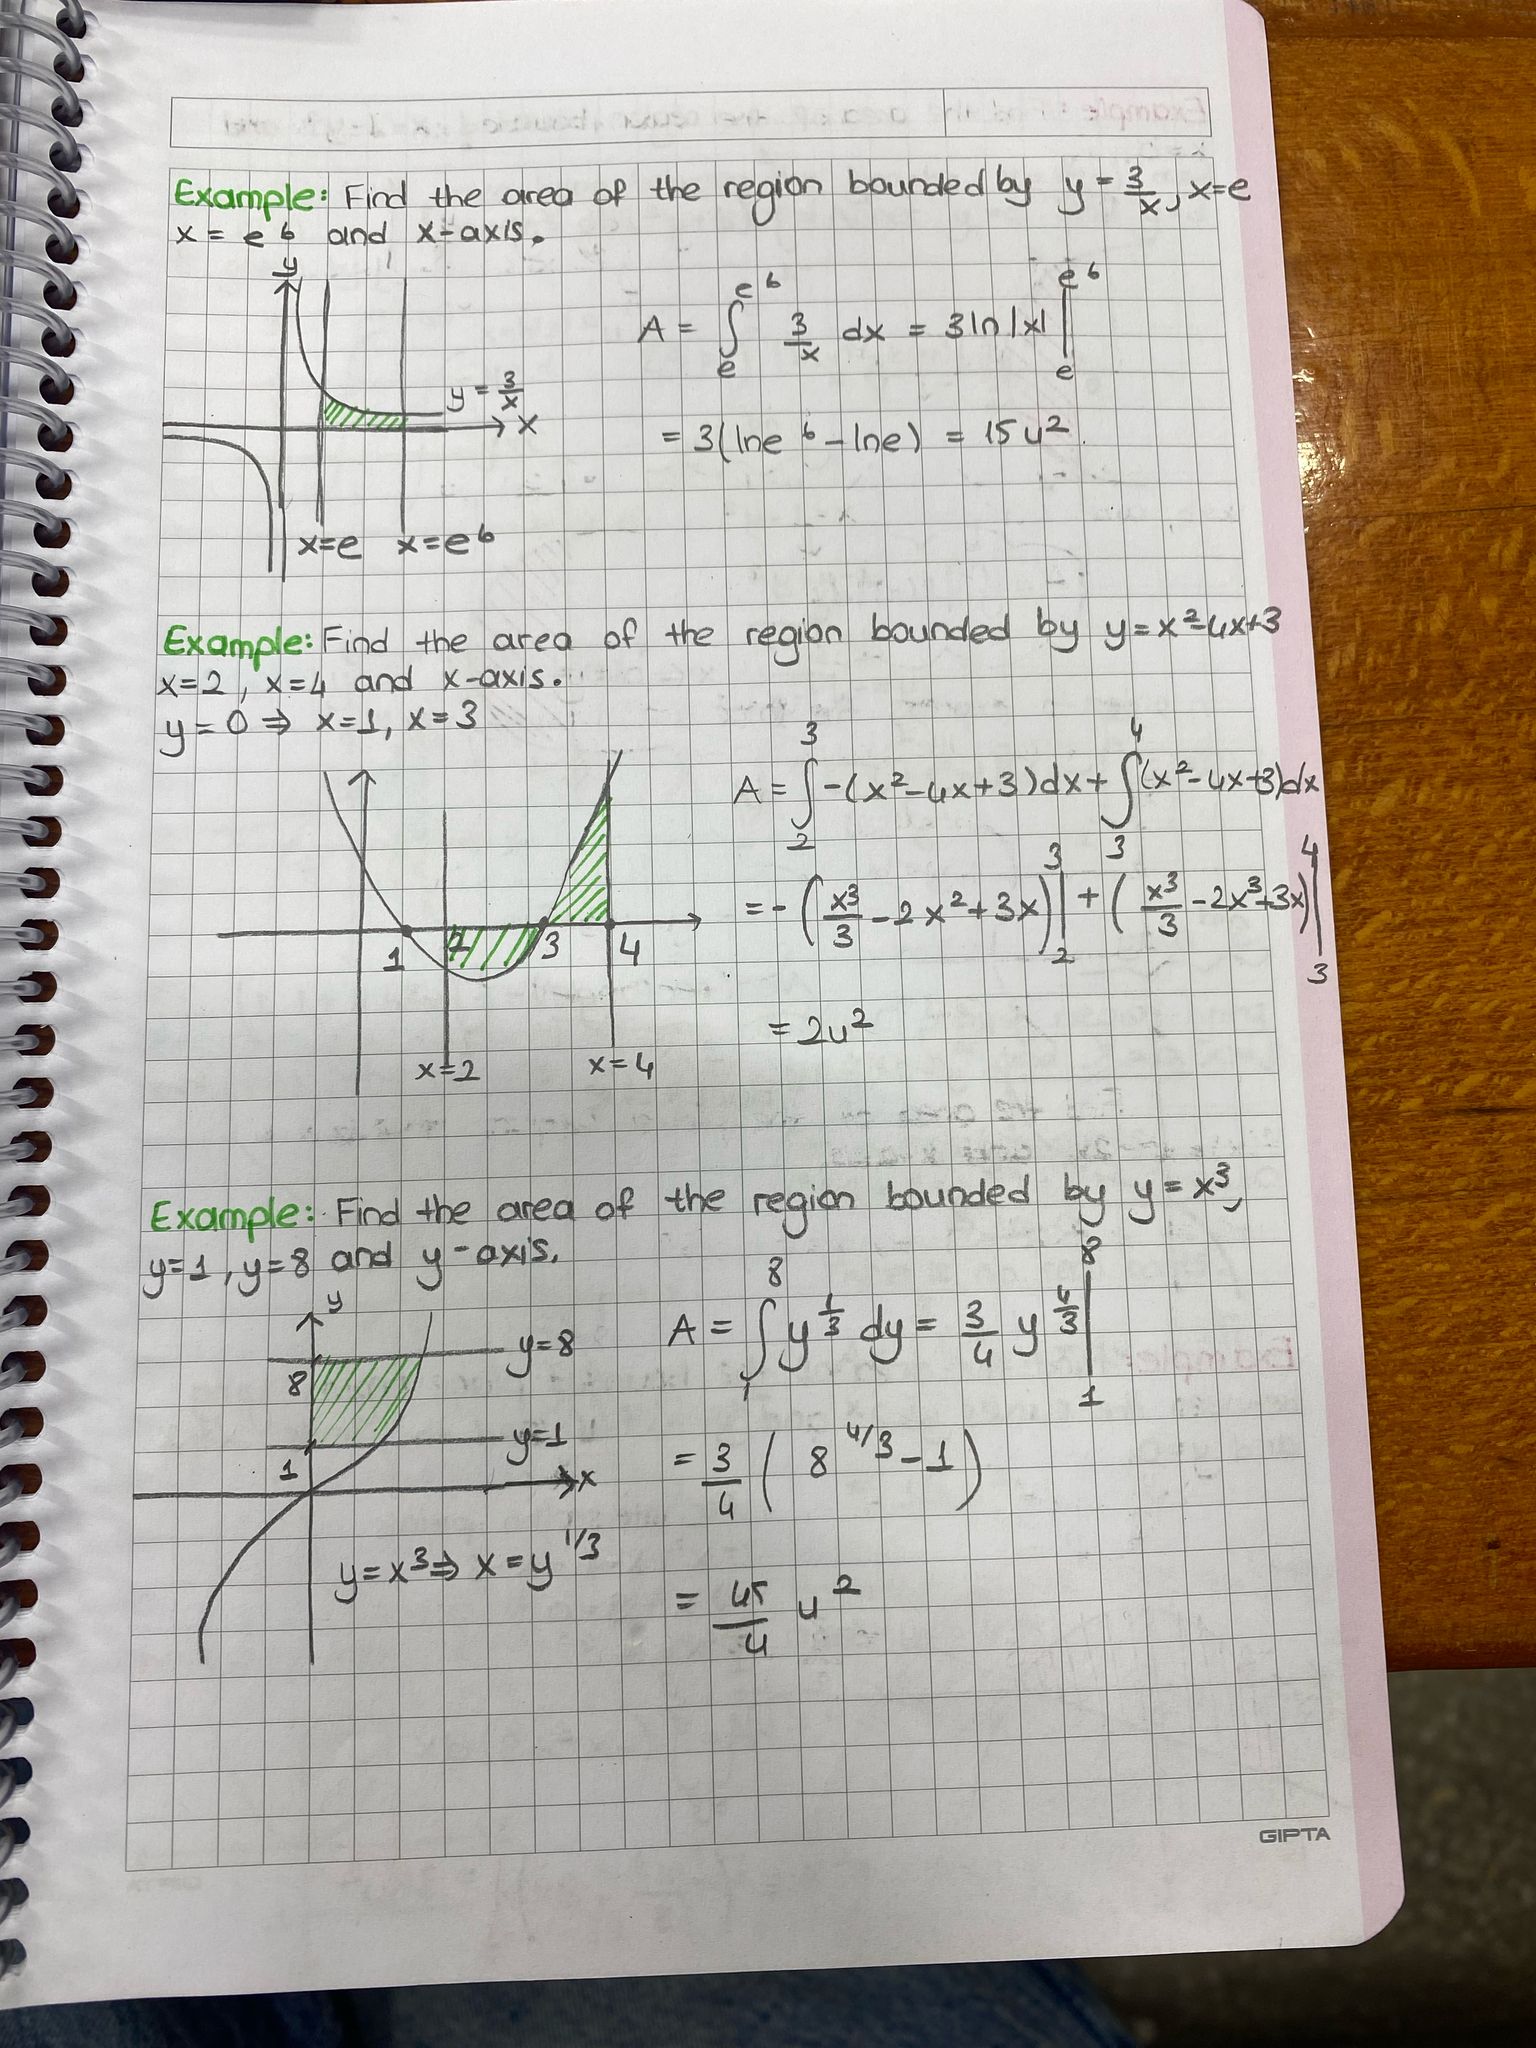 Example: Find the area of the region bounded by y = 3/x, x=e
x = e^6 and x-axis.
y
A = ∫_e^{e^6} 3/x dx = 3ln|x| |_e^{e^6}
y = 3/x
x
= 3(lne^6 - lne) = 15u²
x=e x=e^6
Example: Find the area of the region bounded by y=x²-4x+3
x=2, x=4 and x-axis.
y=0 ⇒ x=1, x=3
A = ∫_2^3 -(x²-4x+3)dx + ∫_3^4 (x²-4x+3)dx
= -(x³/3 - 2x²+3x) |_2^3 + (x³/3 - 2x³+3x) |_3^4
1 2 3 4
= 2u²
x=2 x=4
Example: Find the area of the region bounded by y=x³,
y=1, y=8 and y-axis.
y
A = ∫_1^8 y^{1/3} dy = 3/4 y^{4/3} |_1^8
y=8
8
y=1
1
x
= 3/4 ( 8^{4/3} - 1 )
y=x³ ⇒ x=y^{1/3}
= 45/4 u²
GIPTA